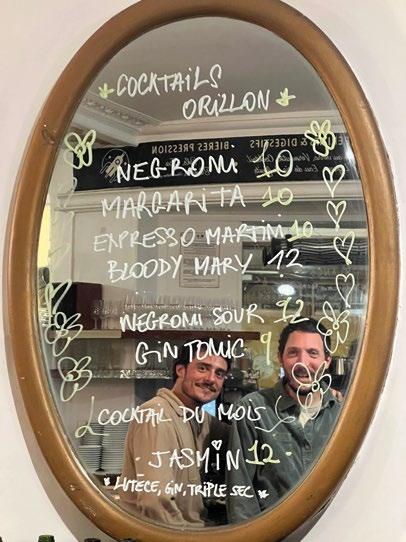 COCKTAILS
ORILLON
& DIGESTIFS
BIERES PRESSION
NEGRONI 10
MARGARITA 10
EXPRESSO MARTINI 10
BLOODY MARY 12
NEGRONI SOUR 12
GIN TONIC 9
COCKTAL DU MOIS
JASMIN 12
LUTÈCE, GN, TRIPLE SEC